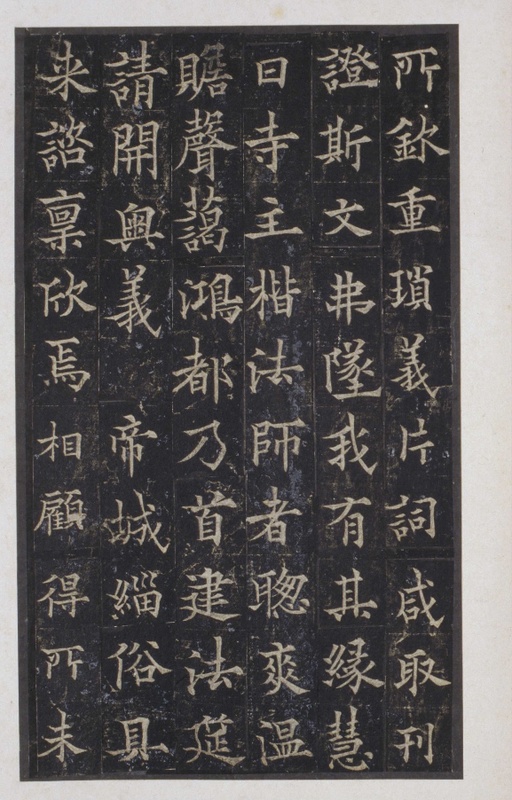 所欽重瑣義片詞咸取刊
證斯文弗墜我有其緣慧
日寺主楷法師者聰爽温
贍聲藹鴻都乃首建法筵
請開奧義帝城緇俗具
来諮稟欣焉相顧得所未